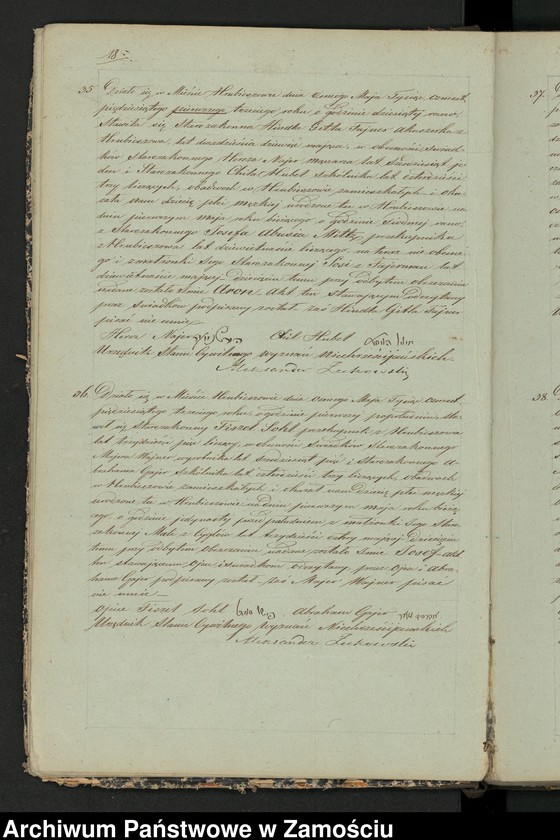 18
35. Działo się w Mieście Hrubieszowie dnia ósmego Maja Tysiąc ośmset
pięćdziesiątego pierwszego trzeciego roku o godzinie dziesiątej rano
Stawiła się Starozakonna Hindla Gitla Fajner Akuszerka z
Hrubieszowa lat dwadzieścia dziewięć mająca, w obecności Świad-
ków Starozakonnego Hersza Najer lat sześćdziesiąt je-
den i Starozakonnego Chila Hubel szkolnika lat czterdzieści
trzy liczących, obudwoch w Hrubieszowie zamieszkałych i oka-
zała nam dziecię płci męzkiej urodzone tu w Hrubieszowie na
dniu pierwszym maja roku bieżącego o godzinie siódmej rano
z Starozakonnego Josefa Abusia przekupnika
z Hrubieszowa lat dziewiętnaście liczącego, na teraz nie obecne-
go i z małżonki Jego Starozakonnej Sosi z Fajerman lat
dziewiętnaście mającej Dziecięciu temu przy odbytem obrzezaniu
nadane zostało Imie Aron Akt ten Stawającym odczytany
przez świadków podpisany został zaś Hindla Gitla Fajner
pisać nie umie
Hersz Najer Chil Hubel
Urzędnik Stanu Cywilnego wyznań Niechrześcijańskich
Aleksander Żukowski
36. Działo się w Mieście Hrubieszowie dnia ósmego Maja Tysiąc ośmset
pięćdziesiątego trzeciego roku o godzinie pierwszej popołudniu sta-
wił się Starozakonny Fiszel Sokt przekupnik z Hrubieszowa
lat trzydzieści pięć liczący w obecności Świadków Starozakonnego
Majera Wajner wyrobnika lat i Starozakonnego A-
brahama Gejer Szkolnika lat czterdzieści trzy liczących, obudwoch
w Hrubieszowie zamieszkałych i okazał nam dziecię płci męzkiej
urodzone tu w Hrubieszowie na dniu pierwszym maja roku bieżą-
cego o godzinie jedynastej przed południem z małżonki Jego Sta-
rozakonnej Mali z lat trzydzieści cztery mającej Dziecięciu
temu przy odbytem obrzezaniu nadane zostało Imie Josef akt
ten stawającemu Ojcu i świadkom odczytany przez Ojca i Abra-
hama Gejer podpisany został zaś Majer Wajner pisać
nie umie
Ojciec Fiszel Sokt Abraham Gejer
Urzędnik Stanu Cywilnego wyznań Niechrześcijańskich
Aleksander Żukowski
37.
38.
Archiwum Państwowe w Zamościu